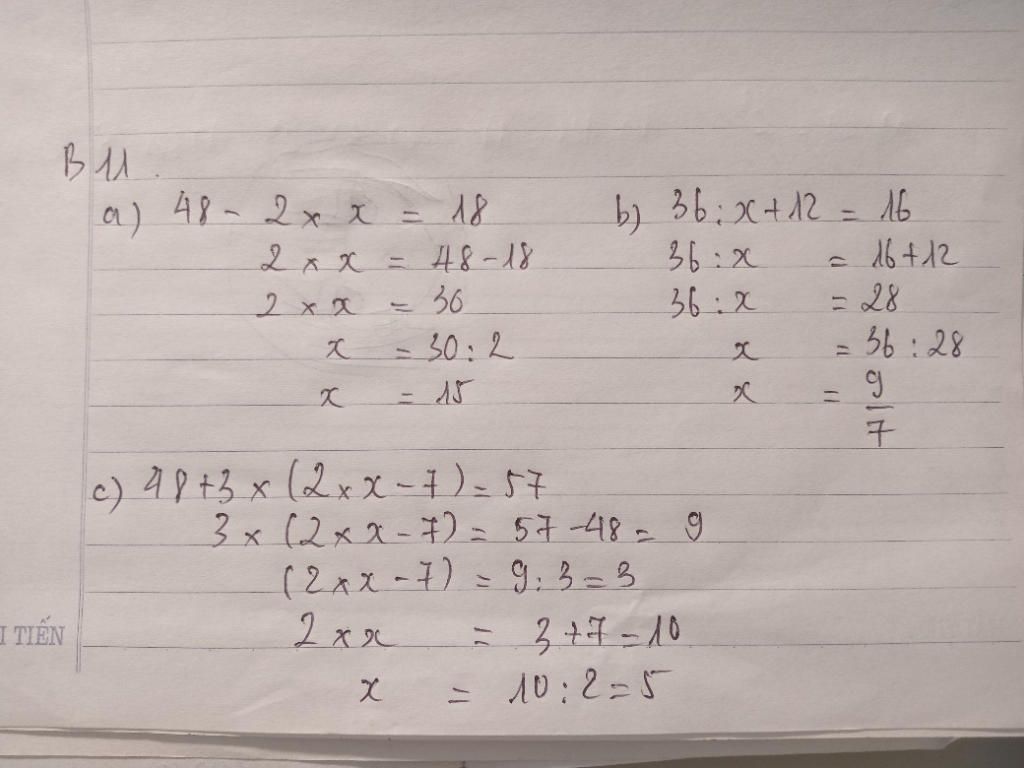 B 11.
a) 48 - 2 × x = 18
2 × x = 48 - 18
2 × x = 30
x = 30 : 2
x = 15
b) 36 : x + 12 = 16
36 : x = 16 + 12
36 : x = 28
x = 36 : 28
x = 9/7
c) 48 + 3 × (2 × x - 7) = 57
3 × (2 × x - 7) = 57 - 48 = 9
(2 × x - 7) = 9 : 3 = 3
2 × x = 3 + 7 = 10
x = 10 : 2 = 5
I TIẾN